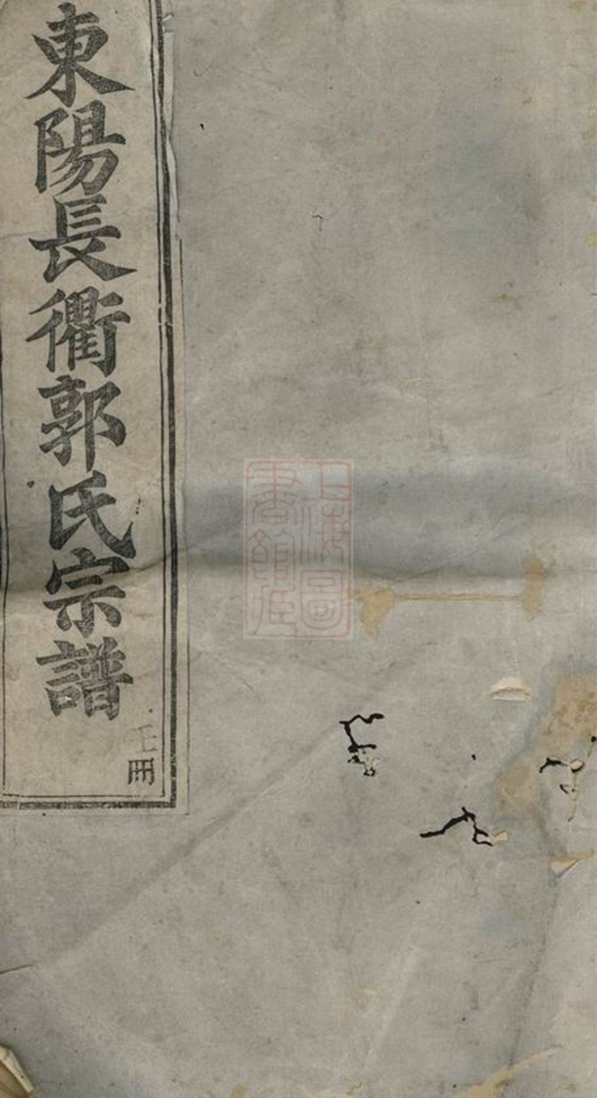 東陽長衢郭氏宗譜
冊
上海圖
書館藏